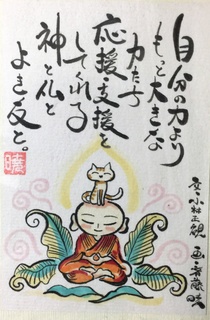 自分の力より
もっと大きな
力たち
応援・支援を
してくれる
神と仏と
よき友と。
文・小林正観 画・斉藤